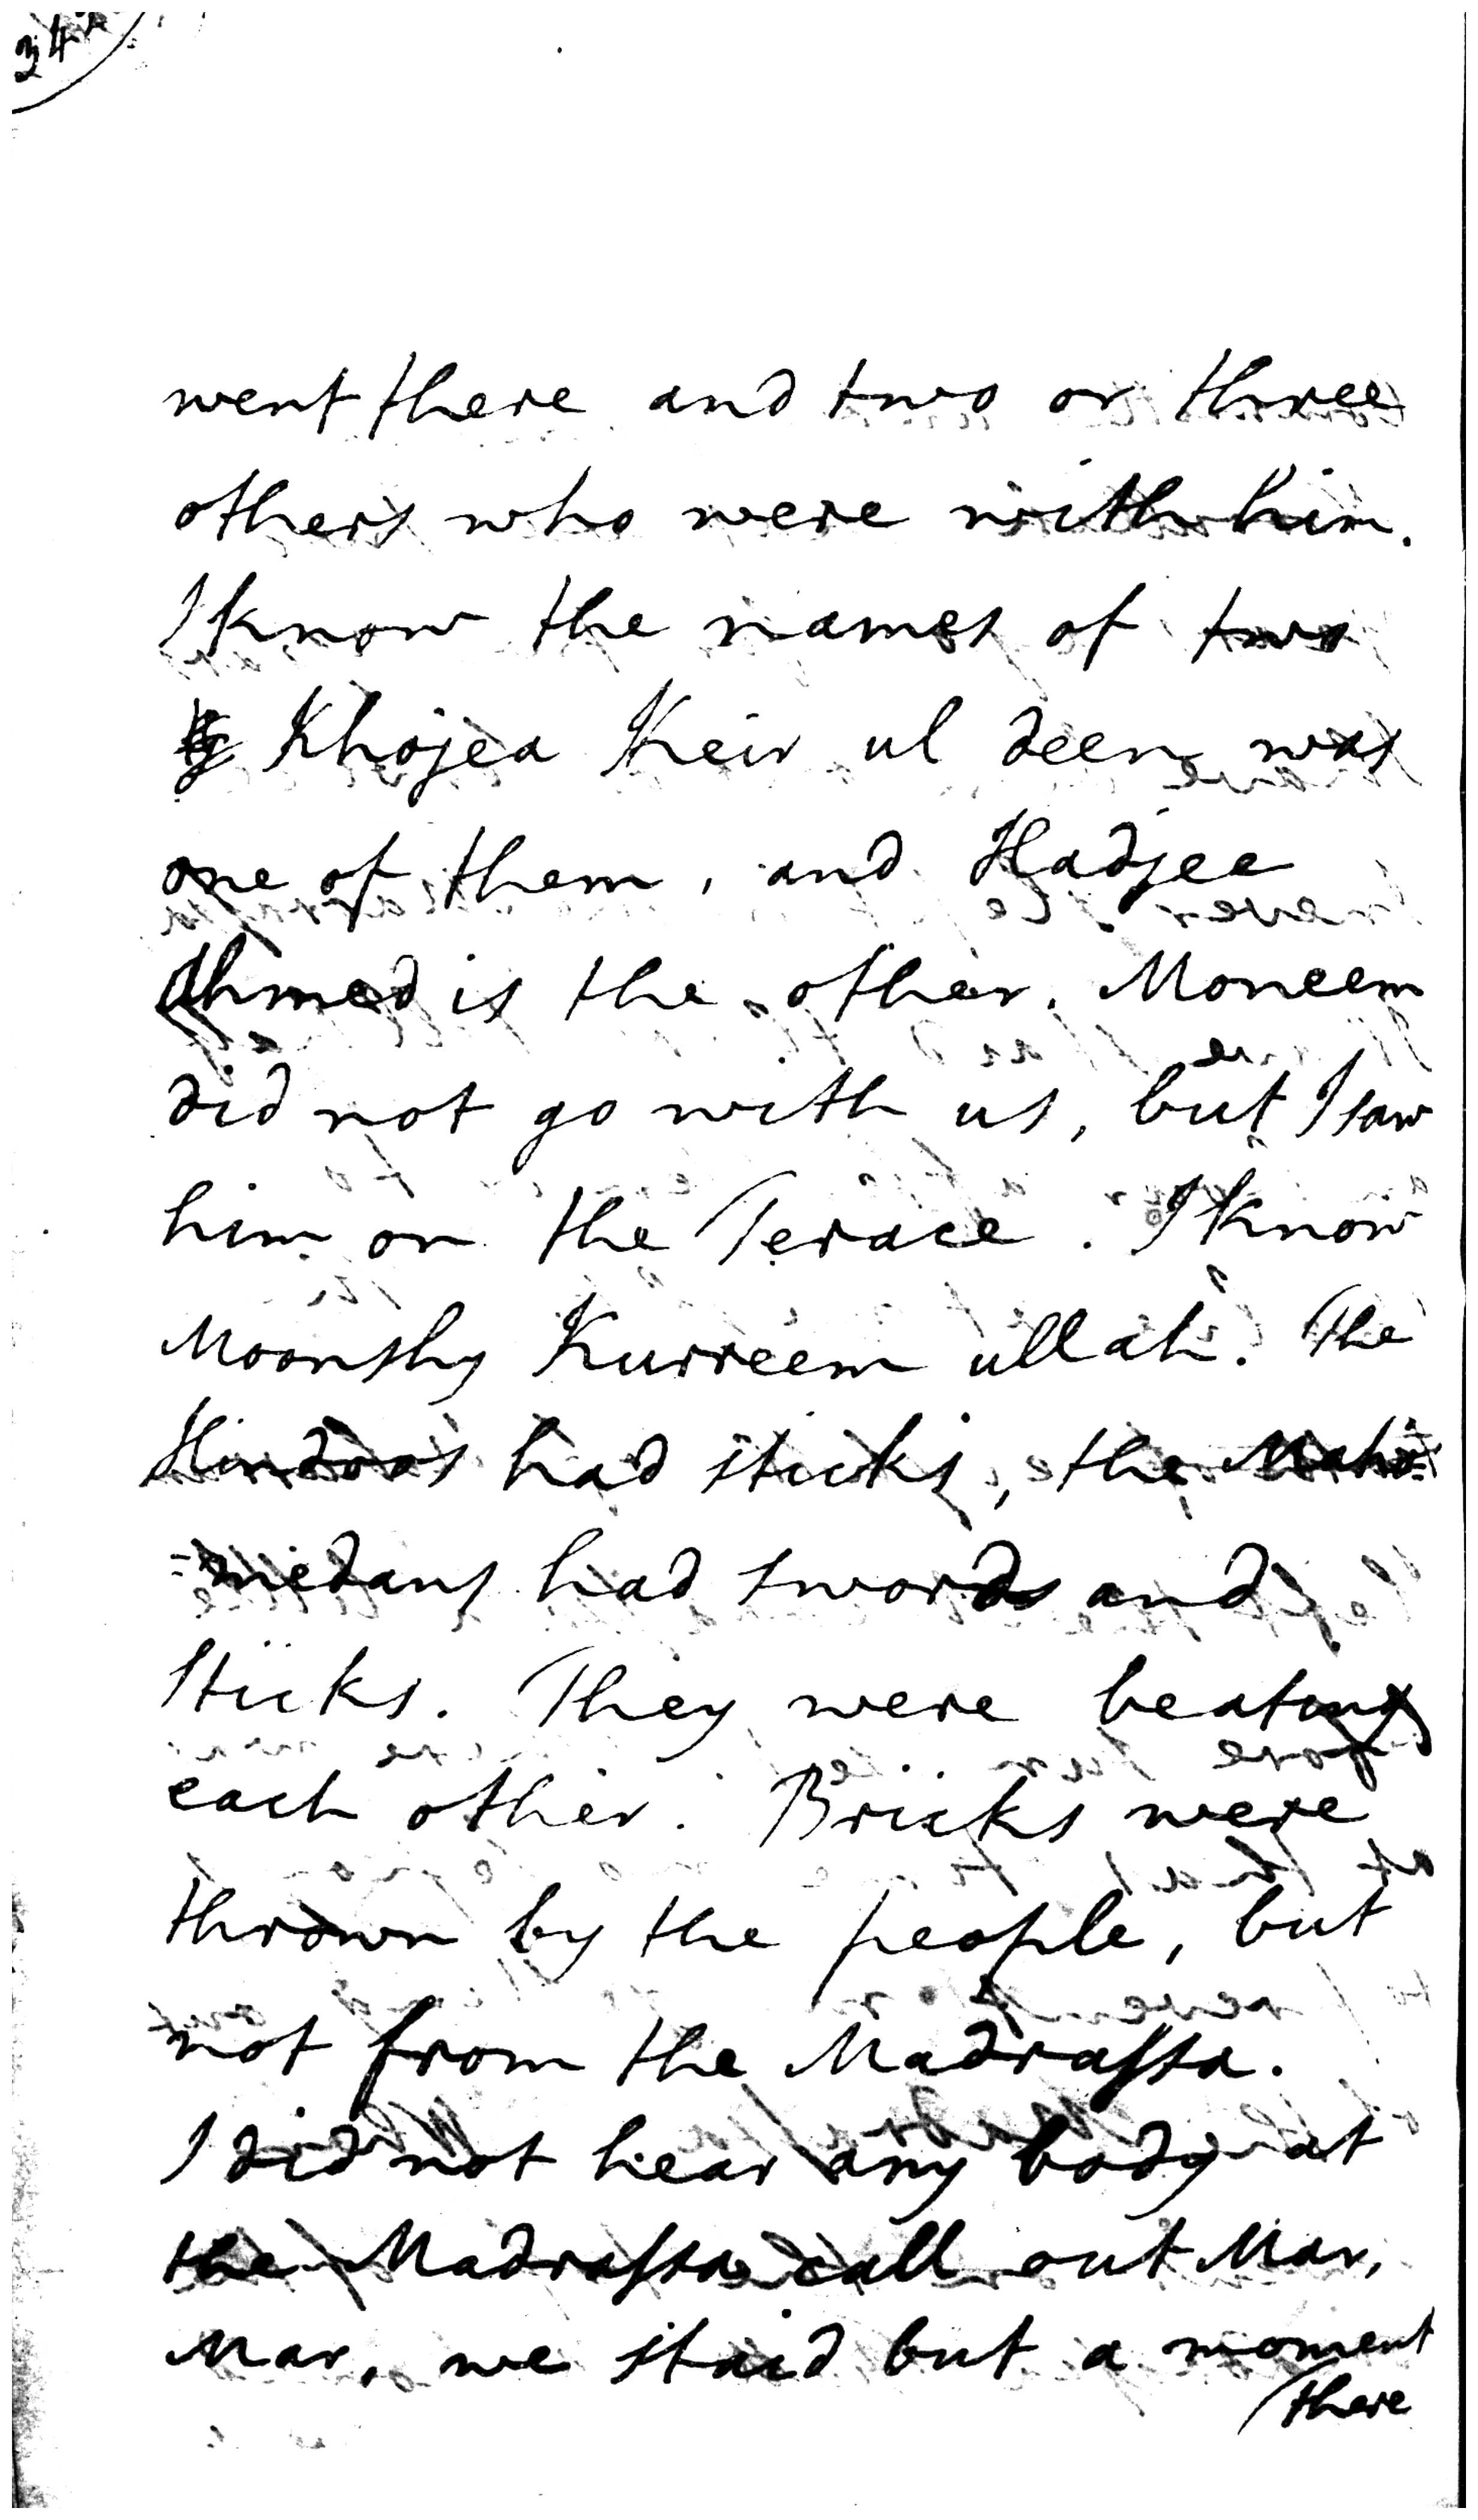 34
went there and two or three
others who were with him.
I know the names of two
Khojea Keir ul deen was
one of them, and Hadjee
Ahmed is the other. Moneem
did not go with us, but I saw
him on the Terace. I know
Moonshy Kurreem ullah. The
Hindoos had sticks, the Maho=
=medans had swords and
Sticks. They were beating
each other. Bricks were
thrown by the people, but
not from the Madrassa.
I did not hear any body at
the Madrassa call out Mar,
Mar, we staid but a moment
there